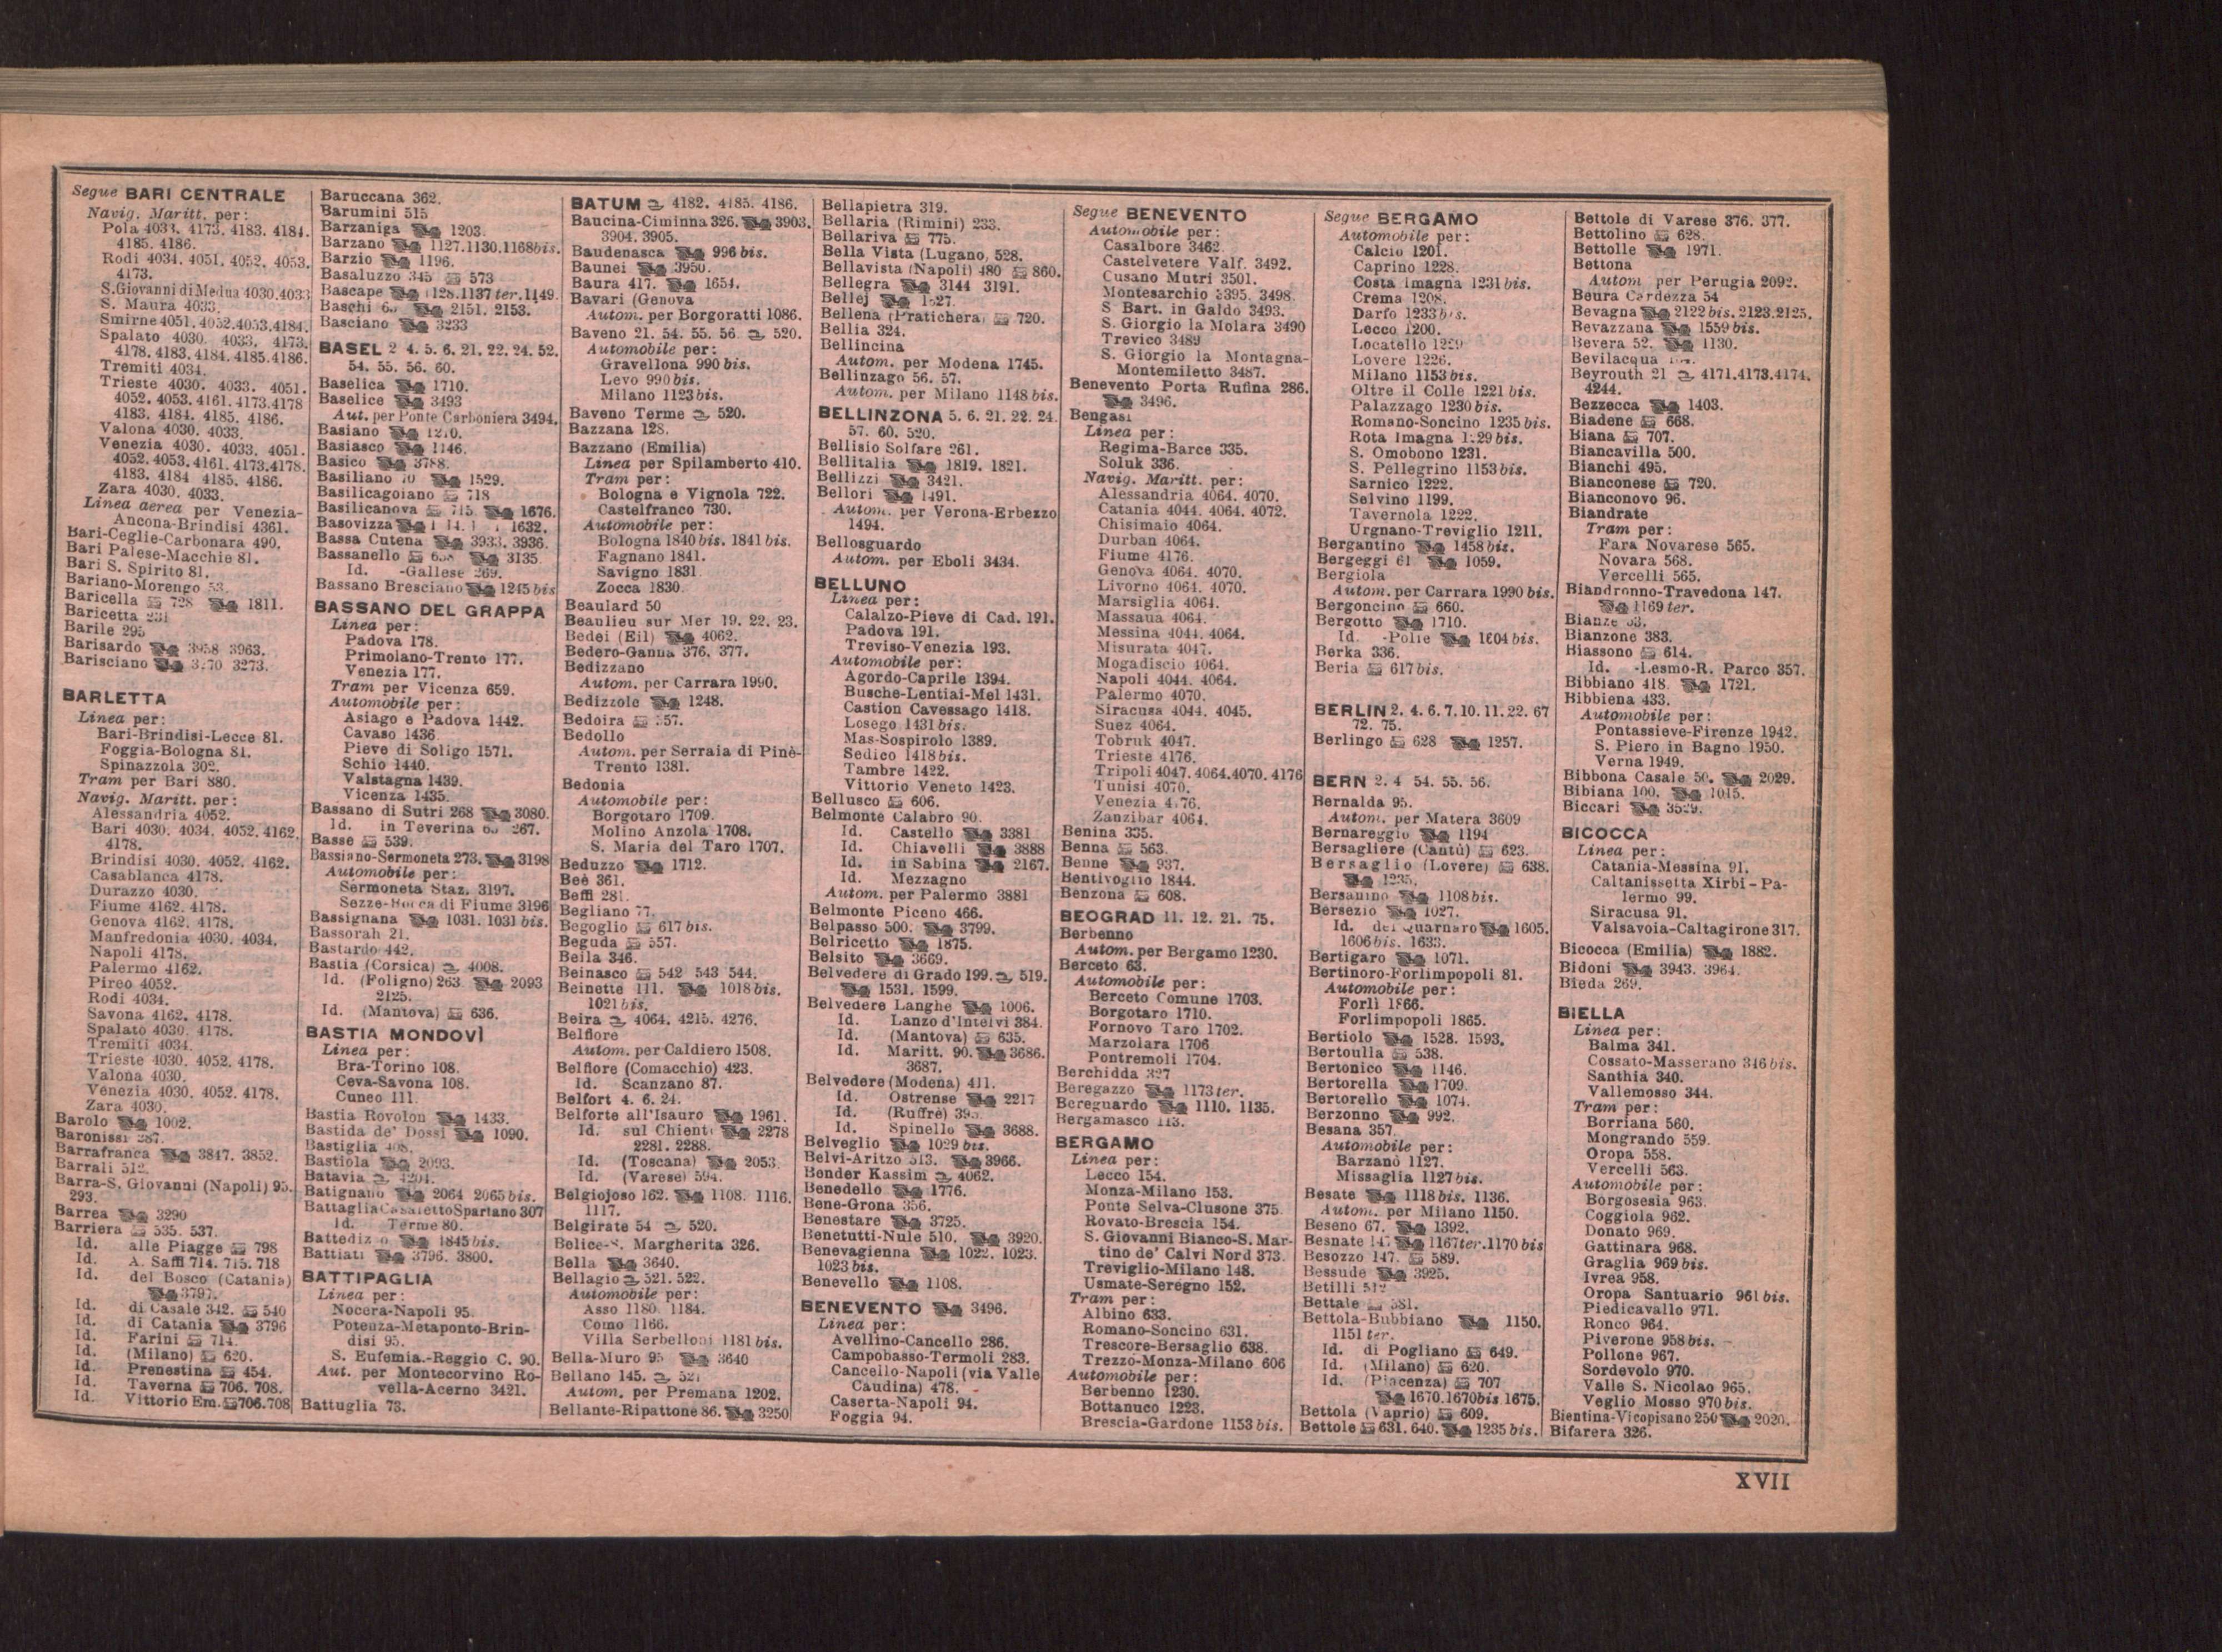 Segue BARI CENTRALE
Navig. Maritt. per:
Pola 4033. 4173. 4183. 4184.
4185. 4186.
Rodi 4034. 4051. 4052. 4053.
4173.
S. Giovanni di Medua 4030. 4033
S. Maura 4033.
Smirne 4051. 4052. 4053. 4184.
Spalato 4030. 4033. 4173.
4178. 4183. 4184. 4185. 4186.
Tremiti 4034.
Trieste 4030. 4033. 4051.
4052. 4053. 4161. 4173. 4178
4183. 4184. 4185. 4186.
Valona 4030. 4033.
Venezia 4030. 4033. 4051.
4052. 4053. 4161. 4173. 4178.
4183. 4184 4185. 4186.
Zara 4030. 4033.
Linea aerea per Venezia-
Ancona-Brindisi 4361.
Bari-Ceglie-Carbonara 490.
Bari Palese-Macchie 81.
Bari S. Spirito 81.
Bariano-Morengo 53.
Baricella 728 1811.
Baricetta 231
Barile 295
Barisardo 3958 3963.
Barisciano 3273.
BARLETTA
Linea per:
Bari-Brindisi-Lecce 81.
Foggia-Bologna 81.
Spinazzola 302.
Tram per Bari 880.
Navig. Maritt. per:
Alessandria 4052.
Bari 4030. 4034. 4052. 4162.
4178.
Brindisi 4030. 4052. 4162.
Casablanca 4178.
Durazzo 4030.
Fiume 4162. 4178.
Genova 4162. 4178.
Manfredonia 4030. 4034.
Napoli 4178.
Palermo 4162.
Pireo 4052.
Rodi 4034.
Savona 4162. 4178.
Spalato 4030. 4178.
Tremiti 4034.
Trieste 4030. 4052. 4178.
Valona 4030.
Venezia 4030. 4052. 4178.
Zara 4030.
Barolo 1002.
Baronissi 287.
Barrafranca 3847. 3852.
Barrali 512.
Barra-S. Giovanni (Napoli) 95.
293.
Barrea 3290
Barriera 535. 537.
Id. alle Piagge 798
Id. A. Saffi 714. 715. 718
Id. del Bosco (Catania)
3797.
Id. di Casale 342. 540
Id. di Catania 3796
Id. Farini 714.
Id. (Milano) 620.
Id. Prenestina 454.
Id. Taverna 706. 708.
Id. Vittorio Em. 706. 708
Baruccana 362.
Barumini 515
Barzaniga 1203.
Barzano 1127. 1130. 1168 bis.
Barzio 1196.
Basaluzzo 345 573
Bascape 1128. 1137 ter. 1149.
Baschi 2151. 2153.
Basciano 3233
BASEL 2 4. 5. 6. 21. 22. 24. 52.
54. 55. 56. 60.
Baselica 1710.
Baselice 3493
Aut. per Ponte Carboniera 3494.
Basiano 1210.
Basiasco 1146.
Basico 3788.
Basiliano 70 1529.
Basilicagoiano 718
Basilicanova 715. 1676.
Basovizza 1632.
Bassa Cutena 3933. 3936.
Bassanello 658 3135
Id. -Gallese 269.
Bassano Bresciano 1245 bis
BASSANO DEL GRAPPA
Linea per:
Padova 178.
Primolano-Trento 177.
Venezia 177.
Tram per Vicenza 659.
Automobile per:
Asiago e Padova 1442.
Cavaso 1436
Pieve di Soligo 1571.
Schio 1440.
Valstagna 1439.
Vicenza 1435.
Bassano di Sutri 268 3080.
Id. in Teverina 267.
Basse 539.
Bassiano-Sermoneta 273. 3198
Automobile per:
Sermoneta Staz. 3197.
Sezze-Bocca di Fiume 3196
Bassignana 1031. 1031 bis.
Bassorah 21.
Bastardo 442.
Bastia (Corsica) 4008.
Id. (Foligno) 263 2093
2125.
Id. (Mantova) 636.
BASTIA MONDOVÌ
Linea per:
Bra-Torino 108.
Ceva-Savona 108.
Cuneo 111.
Bastia Rovolon 1433.
Bastida de' Dossi 1090.
Bastiglia 408.
Bastiola 2093.
Batavia 4204.
Batignano 2064 2065 bis.
Battaglia Casaletto Spartano 307
Id. Terme 80.
Battedizzo 1845 bis.
Battiati 3796. 3800.
BATTIPAGLIA
Linea per:
Nocera-Napoli 95.
Potenza-Metaponto-Brin-
disi 95.
S. Eufemia.-Reggio C. 90.
Aut. per Montecorvino Ro-
vella-Acerno 3421.
Battuglia 73.
BATUM 4182. 4185. 4186.
Baucina-Ciminna 326. 3903.
3904. 3905.
Baudenasca 996 bis.
Baunei 3950.
Baura 417. 1654.
Bavari (Genova
Autom. per Borgoratti 1086.
Baveno 21. 54. 55. 56 520.
Automobile per:
Gravellona 990 bis.
Levo 990 bis.
Milano 1123 bis.
Baveno Terme 520.
Bazzana 128.
Bazzano (Emilia)
Linea per Spilamberto 410.
Tram per:
Bologna e Vignola 722.
Castelfranco 730.
Automobile per:
Bologna 1840 bis. 1841 bis.
Fagnano 1841.
Savigno 1831.
Zocca 1830.
Beaulard 50
Beaulieu sur Mer 19. 22. 23.
Bedei (Eil) 4062.
Bedero-Ganna 376. 377.
Bedizzano
Autom. per Carrara 1990.
Bedizzole 1248.
Bedoira 557.
Bedollo
Autom. per Serraia di Pinè-
Trento 1381.
Bedonia
Automobile per:
Borgotaro 1709.
Molino Anzola 1708.
S. Maria del Taro 1707.
Beduzzo 1712.
Beè 361.
Beffi 281.
Begliano 77.
Begoglio 617 bis.
Beguda 557.
Beila 346.
Beinasco 542 543 544.
Beinette 111. 1018 bis.
1021 bis.
Beira 4064. 4215. 4276.
Belfiore
Autom. per Caldiero 1508.
Belfiore (Comacchio) 423.
Id. Scanzano 87.
Belfort 4. 6. 24.
Belforte all'Isauro 1961.
Id. sul Chienti 2278
2281. 2288.
Id. (Toscana) 2053
Id. (Varese) 594.
Belgiojoso 162. 1108. 1116.
1117.
Belgirate 54 520.
Belice-S. Margherita 326.
Bella 3640.
Bellagio 521. 522.
Automobile per:
Asso 1180. 1184.
Como 1166.
Villa Serbelloni 1181 bis.
Bella-Muro 95 3640
Bellano 145. 521
Autom. per Premana 1202.
Bellante-Ripattone 86. 3250
Bellapietra 319.
Bellaria (Rimini) 233.
Bellariva 775.
Bella Vista (Lugano, 528.
Bellavista (Napoli) 480 860.
Bellegra 3144 3191.
Bellej 1527.
Bellena (Pratichera) 720.
Bellia 324.
Bellincina
Autom. per Modena 1745.
Bellinzago 56. 57.
Autom. per Milano 1148 bis.
BELLINZONA 5. 6. 21. 22. 24.
57. 60. 520.
Bellisio Solfare 261.
Bellitalia 1819. 1821.
Bellizzi 3421.
Bellori 1491.
Autom. per Verona-Erbezzo
1494.
Bellosguardo
Autom. per Eboli 3434.
BELLUNO
Linea per:
Calalzo-Pieve di Cad. 191.
Padova 191.
Treviso-Venezia 193.
Automobile per:
Agordo-Caprile 1394.
Busche-Lentiai-Mel 1431.
Castion Cavessago 1418.
Losego 1431 bis.
Mas-Sospirolo 1389.
Sedico 1418 bis.
Tambre 1422.
Vittorio Veneto 1423.
Bellusco 606.
Belmonte Calabro 90.
Id. Castello 3381
Id. Chiavelli 3888
Id. in Sabina 2167.
Id. Mezzagno
Autom. per Palermo 3881
Belmonte Piceno 466.
Belpasso 500. 3799.
Belricetto 1875.
Belsito 3669.
Belvedere di Grado 199. 519.
1531. 1599.
Belvedere Langhe 1006.
Id. Lanzo d'Intelvi 384.
Id. (Mantova) 635.
Id. Maritt. 90. 3686.
3687.
Belvedere (Modena) 411.
Id. Ostrense 2217
Id. (Ruffrè) 395.
Id. Spinello 3688.
Belveglio 1029 bis.
Belvi-Aritzo 513. 3966.
Bender Kassim 4062.
Benedello 1776.
Bene-Grona 356.
Benestare 3725.
Benetutti-Nule 510. 3920.
Benevagienna 1022. 1023.
1023 bis.
Benevello 1108.
BENEVENTO 3496.
Linea per:
Avellino-Cancello 286.
Campobasso-Termoli 283.
Cancello-Napoli (via Valle
Caudina) 478.
Caserta-Napoli 94.
Foggia 94.
Segue BENEVENTO
Automobile per:
Casalbore 3462.
Castelvetere Valf. 3492.
Cusano Mutri 3501.
Montesarchio 3395. 3498.
S Bart. in Galdo 3493.
S. Giorgio la Molara 3490
Trevico 3489
S. Giorgio la Montagna-
Montemiletto 3487.
Benevento Porta Rufina 286.
3496.
Bengasi
Linea per:
Regima-Barce 335.
Soluk 336.
Navig. Maritt. per:
Alessandria 4064. 4070.
Catania 4044. 4064. 4072.
Chisimaio 4064.
Durban 4064.
Fiume 4176.
Genova 4064. 4070.
Livorno 4064. 4070.
Marsiglia 4064.
Massaua 4064.
Messina 4044. 4064.
Misurata 4047.
Mogadiscio 4064.
Napoli 4044. 4064.
Palermo 4070.
Siracusa 4044. 4045.
Suez 4064.
Tobruk 4047.
Trieste 4176.
Tripoli 4047. 4064. 4070. 4176
Tunisi 4070.
Venezia 4176.
Zanzibar 4064.
Benina 335.
Benna 563.
Benne 937.
Bentivoglio 1844.
Benzona 608.
BEOGRAD 11. 12. 21. 75.
Berbenno
Autom. per Bergamo 1230.
Berceto 63.
Automobile per:
Berceto Comune 1703.
Borgotaro 1710.
Fornovo Taro 1702.
Marzolara 1706
Pontremoli 1704.
Berchidda 327
Beregazzo 1173 ter.
Bereguardo 1110. 1135.
Bergamasco 113.
BERGAMO
Linea per:
Lecco 154.
Monza-Milano 153.
Ponte Selva-Clusone 375.
Rovato-Brescia 154.
S. Giovanni Bianco-S. Mar-
tino de' Calvi Nord 373.
Treviglio-Milano 148.
Usmate-Seregno 152.
Tram per:
Albino 633.
Romano-Soncino 631.
Trescore-Bersaglio 638.
Trezzo-Monza-Milano 606
Automobile per:
Berbenno 1230.
Bottanuco 1223.
Brescia-Gardone 1153 bis.
Segue BERGAMO
Automobile per:
Calcio 1201.
Caprino 1228.
Costa Imagna 1231 bis.
Crema 1208.
Darfo 1233 bis.
Lecco 1200.
Locatello 1229
Lovere 1226.
Milano 1153 bis.
Oltre il Colle 1221 bis.
Palazzago 1230 bis.
Romano-Soncino 1235 bis.
Rota Imagna 1229 bis.
S. Omobono 1231.
S. Pellegrino 1153 bis.
Sarnico 1222.
Selvino 1199.
Tavernola 1222.
Urgnano-Treviglio 1211.
Bergantino 1458 bis.
Bergeggi 61 1059.
Bergiola
Autom. per Carrara 1990 bis.
Bergoncino 660.
Bergotto 1710.
Id. -Polie 1604 bis.
Berka 336.
Beria 617 bis.
BERLIN 2. 4. 6. 7. 10. 11. 22. 67
72. 75.
Berlingo 628 1257.
BERN 2. 4 54. 55. 56.
Bernalda 95.
Autom. per Matera 3609
Bernareggio 1194
Bersagliere (Cantù) 623.
Bersaglio (Lovere) 638.
1235.
Bersanino 1108 bis.
Bersezio 1027.
Id. del Quarnaro 1605.
1606 bis. 1633.
Bertigaro 1071.
Bertinoro-Forlimpopoli 81.
Automobile per:
Forlì 1866.
Forlimpopoli 1865.
Bertiolo 1528. 1593.
Bertoulla 538.
Bertonico 1146.
Bertorella 1709.
Bertorello 1074.
Berzonno 992.
Besana 357.
Automobile per:
Barzanò 1127.
Missaglia 1127 bis.
Besate 1118 bis. 1136.
Autom. per Milano 1150.
Beseno 67. 1392.
Besnate 147 1167 ter. 1170 bis
Besozzo 147. 589.
Bessude 3925.
Betilli 512
Bettale 581.
Bettola-Bubbiano 1150.
1151 ter.
Id. di Pogliano 649.
Id. (Milano) 620.
Id. (Piacenza) 707
1670. 1670 bis 1675.
Bettola (Vaprio) 609.
Bettole 631. 640. 1235 bis.
Bettole di Varese 376. 377.
Bettolino 628.
Bettolle 1971.
Bettona
Autom per Perugia 2092.
Beura Cardezza 54
Bevagna 2122 bis. 2123. 2125.
Bevazzana 1559 bis.
Bevera 52. 1130.
Bevilacqua
Beyrouth 21 4171. 4173. 4174.
4244.
Bezzecca 1403.
Biadene 668.
Biana 707.
Biancavilla 500.
Bianchi 495.
Bianconese 720.
Bianconovo 96.
Biandrate
Tram per:
Fara Novarese 565.
Novara 568.
Vercelli 565.
Biandronno-Travedona 147.
1169 ter.
Bianze 53.
Bianzone 383.
Biassono 614.
Id. -Lesmo-R. Parco 357.
Bibbiano 418. 1721.
Bibbiena 433.
Automobile per:
Pontassieve-Firenze 1942.
S. Piero in Bagno 1950.
Verna 1949.
Bibbona Casale 50. 2029.
Bibiana 100. 1015.
Biccari 3529.
BICOCCA
Linea per:
Catania-Messina 91.
Caltanissetta Xirbi-Pa-
lermo 99.
Siracusa 91.
Valsavoia-Caltagirone 317.
Bicocca (Emilia) 1882.
Bidoni 3943. 3964.
Bieda 269.
BIELLA
Linea per:
Balma 341.
Cossato-Masserano 346 bis.
Santhià 340.
Vallemosso 344.
Tram per:
Borriana 560.
Mongrando 559.
Oropa 558.
Vercelli 563.
Automobile per:
Borgosesia 963.
Coggiola 962.
Donato 969.
Gattinara 968.
Graglia 969 bis.
Ivrea 958.
Oropa Santuario 961 bis.
Piedicavallo 971.
Ronco 964.
Piverone 958 bis.
Pollone 967.
Sordevolo 970.
Valle S. Nicolao 965.
Veglio Mosso 970 bis.
Bientina-Vicopisano 250 2020.
Bifarera 326.
XVII